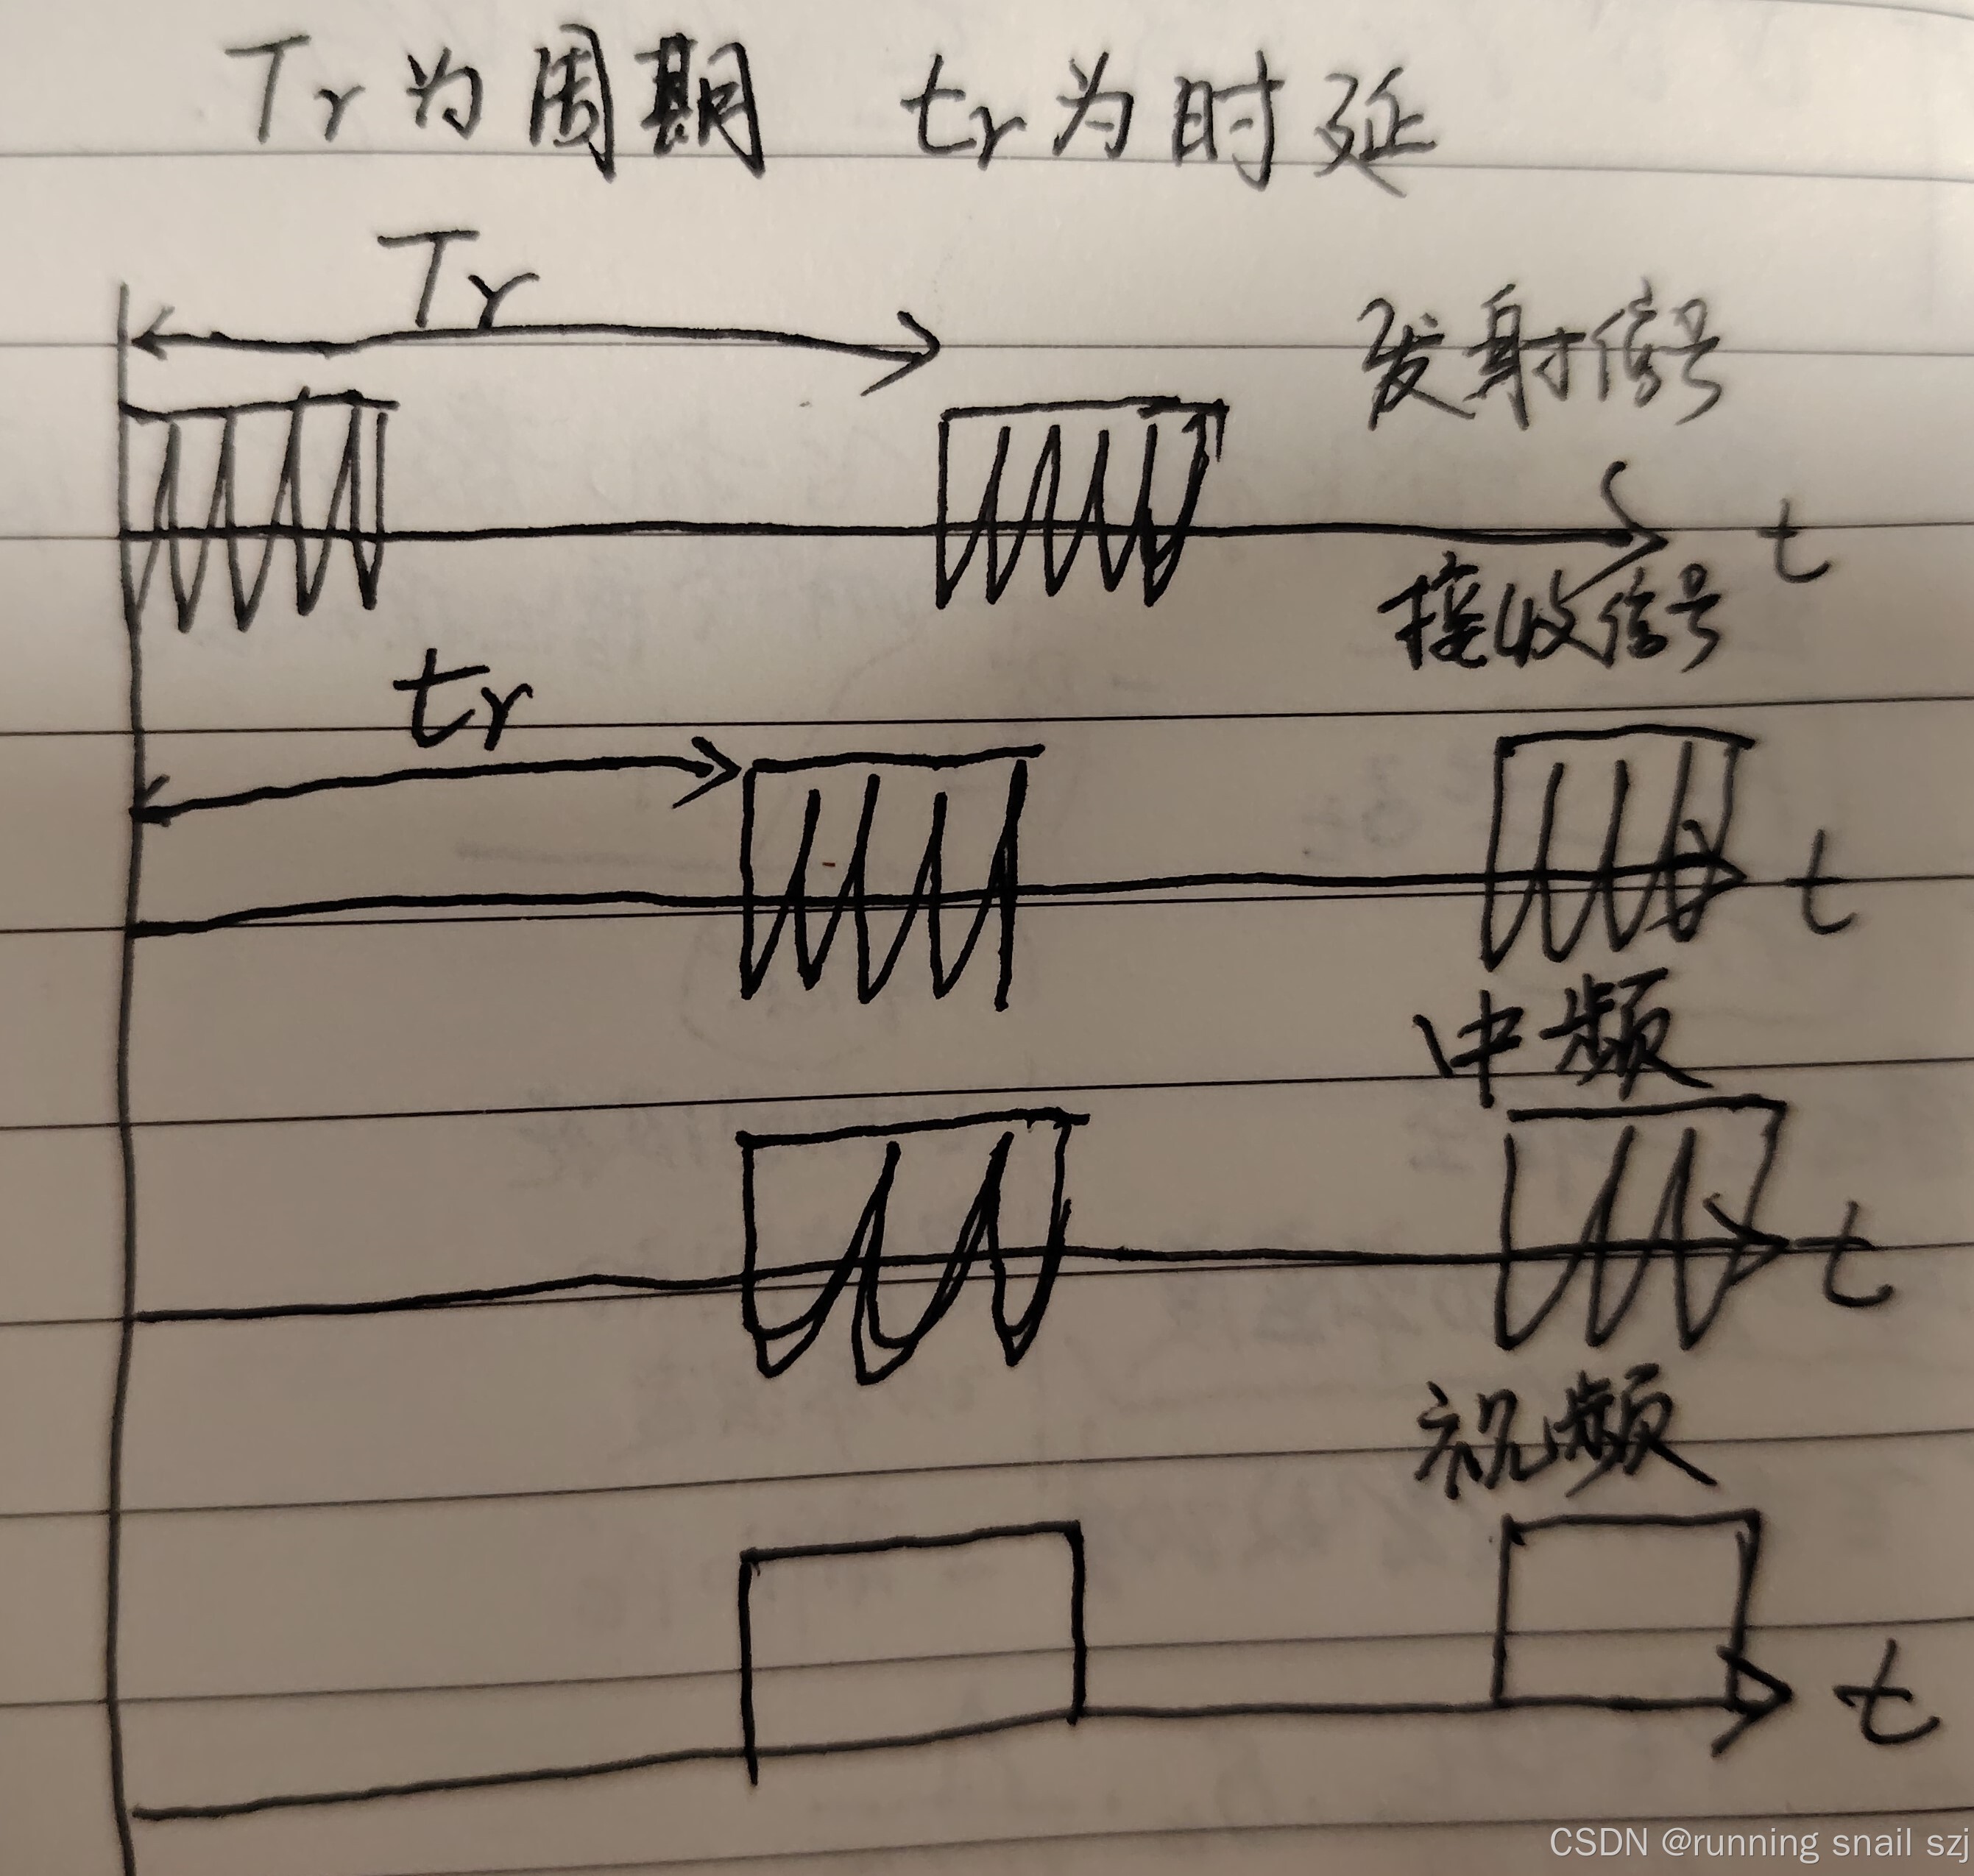 Tr为周期 tr为时延
Tr
发射信号
t
接收信号
tr
t
中频
t
视频
t
CSDN @running snail szj